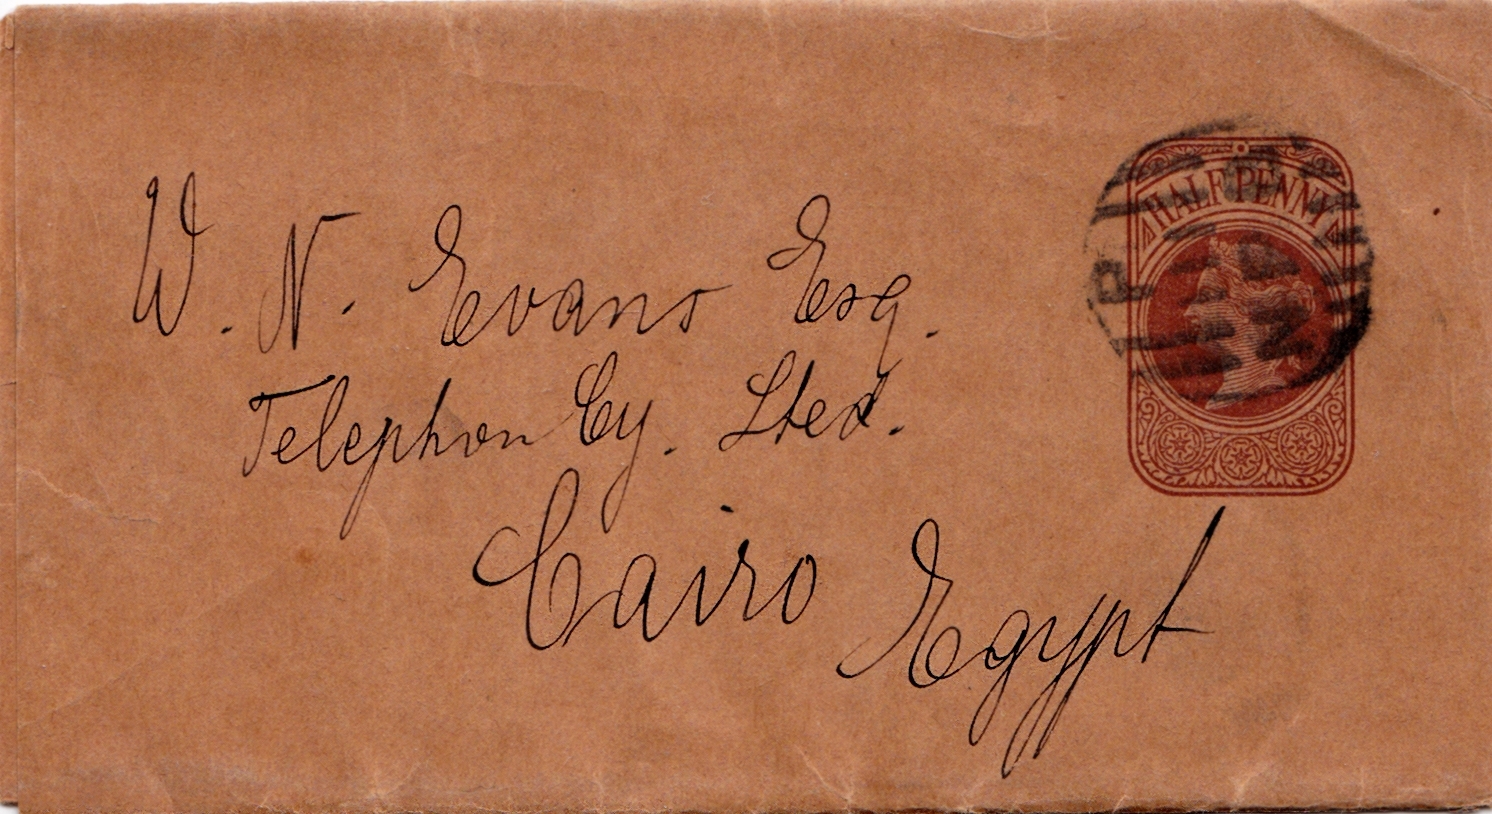 HALF PENNY
W. N. Evans Esq.
Telephon Cy. Lted.
Cairo Egypt